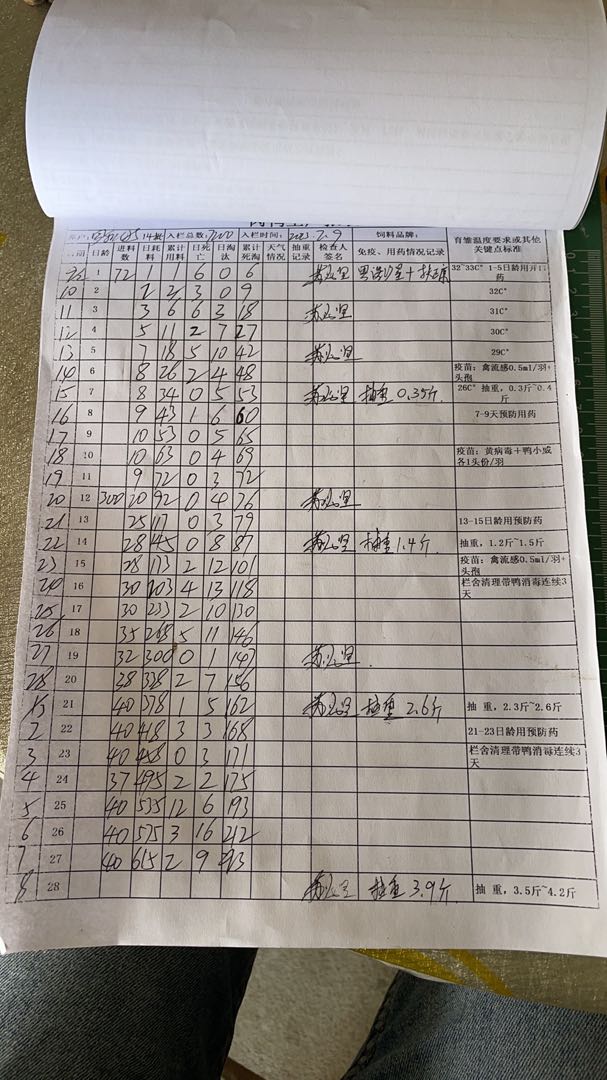 14批 入栏总数:7200 入栏时间:2023.7.9 饲料品牌: 育雏温度要求或其他关键点标准
日龄 进料数 日耗料 累计用料 日死亡 日淘汰 累计死淘 天气情况 抽重记录 检查人签名 免疫、用药情况记录
1 72 1 1 6 0 6 32~33C° 1-5日龄用开口药
10 2 2 3 0 9 32C°
11 3 3 6 6 3 18 31C°
12 4 5 11 2 7 27 30C°
13 5 7 18 5 10 42 29C°
14 6 8 26 2 4 48 疫苗:禽流感0.5ml/羽+头孢
15 7 8 34 0 5 53 抽重 0.35斤 26C° 抽重,0.3斤~0.4斤
16 8 9 43 1 6 60 7-9天预防用药
17 9 10 53 0 5 65
18 10 10 63 0 4 69 疫苗:黄病毒+鸭小或各1头份/羽
19 11 9 72 0 3 72
20 12 300 20 92 0 4 76
21 13 25 117 0 3 79 13-15日龄用预防药
22 14 28 145 0 8 87 抽重 1.4斤. 抽重,1.2斤~1.5斤
23 15 28 173 2 12 101 疫苗:禽流感0.5ml/羽+头孢
16 30 203 4 13 118 栏舍清理带鸭消毒连续3天
25 17 30 233 2 10 130
26 18 35 268 5 11 146
27 19 32 300 0 1 147
28 20 38 338 2 7 156
21 40 378 1 5 162 抽重 2.6斤 抽 重,2.3斤~2.6斤
2 22 40 418 3 3 168 21-23日龄用预防药
3 23 40 458 0 3 171 栏舍清理带鸭消毒连续3天
4 24 37 495 2 2 175
5 25 40 535 12 6 193
6 26 40 575 3 16 212
7 27 40 615 2 9
8 28 抽重 3.9斤 抽 重,3.5斤~4.2斤